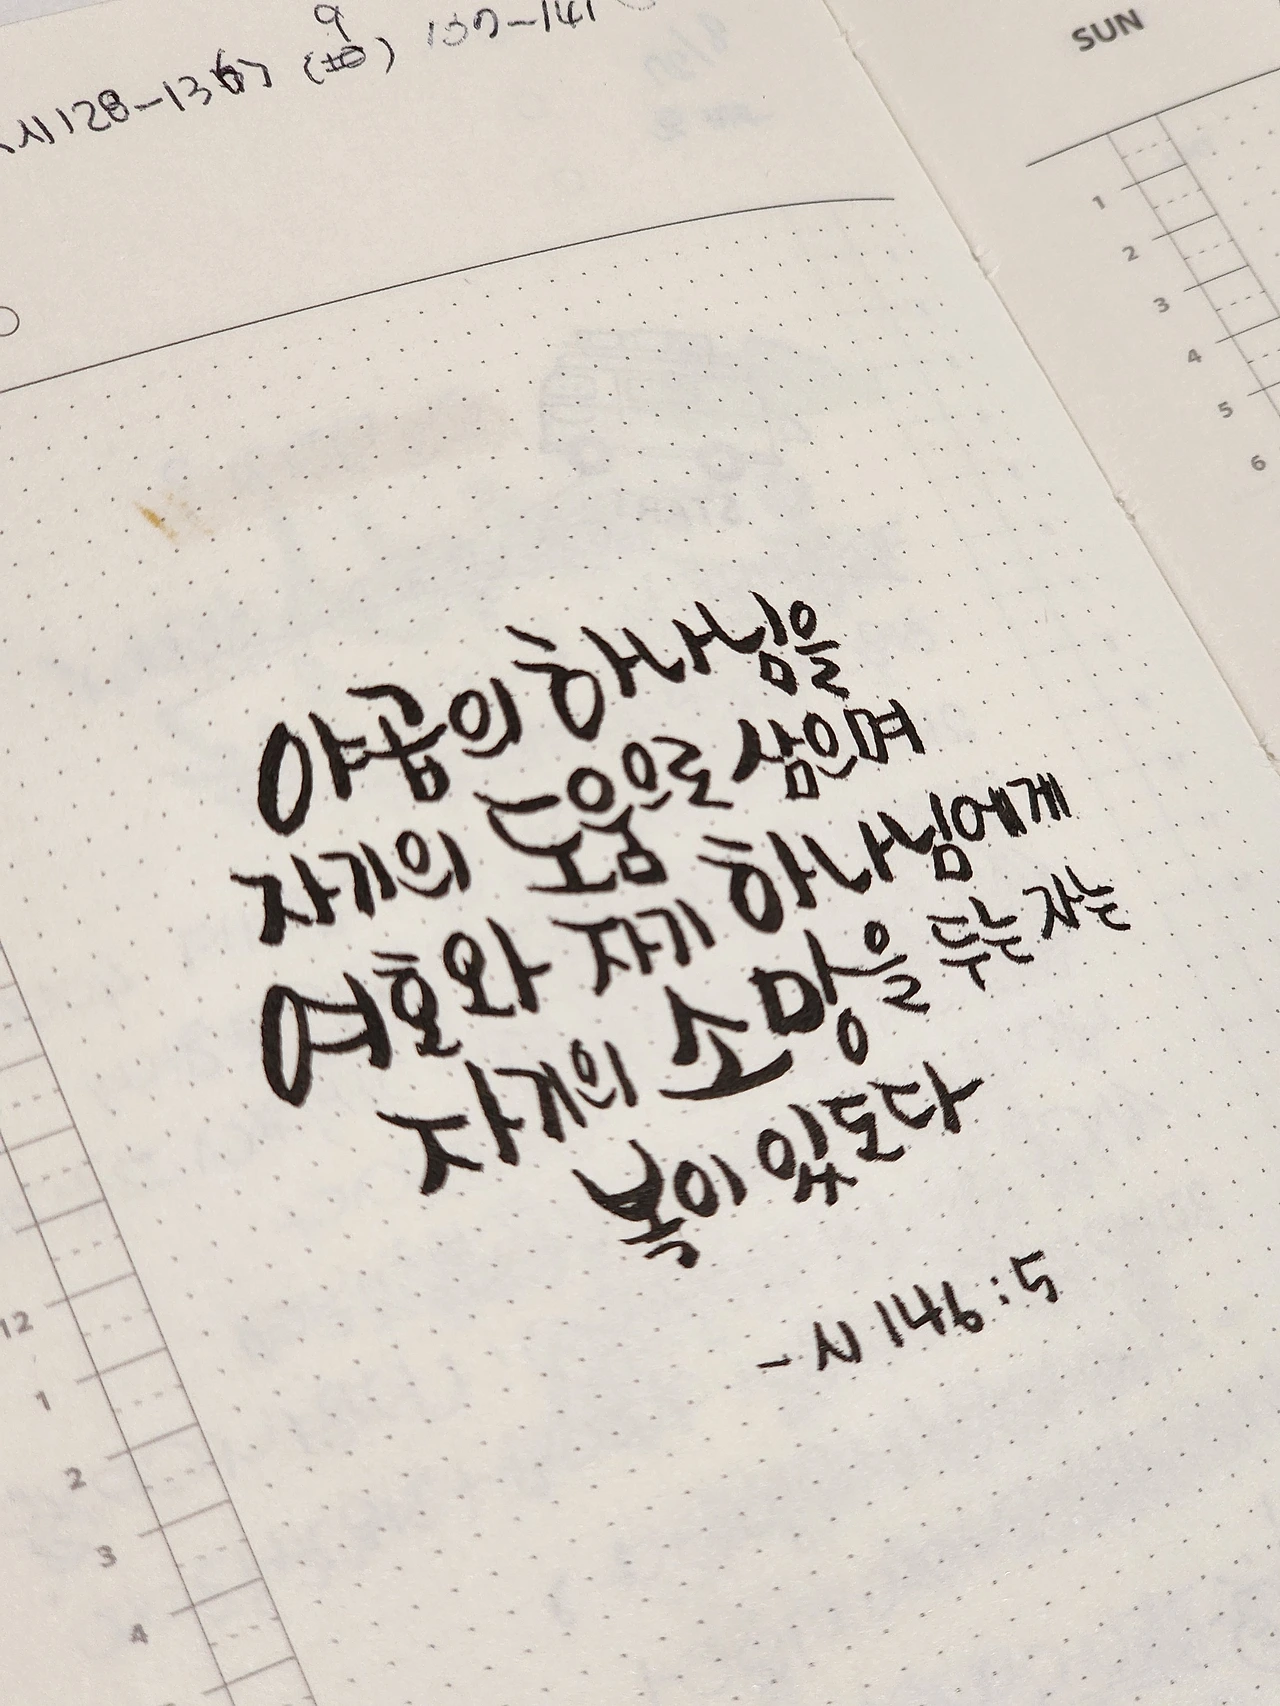 시128-136
137-141
SUN
1
2
3
4
5
6
야곱의 하나님을
자기의 도움으로 삼으며
여호와 자기 하나님에게
자기의 소망을 두는 자는
복이 있도다
- 시 146:5
12
1
2
3
4